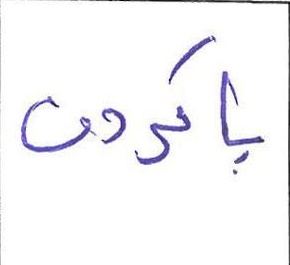 باکردن